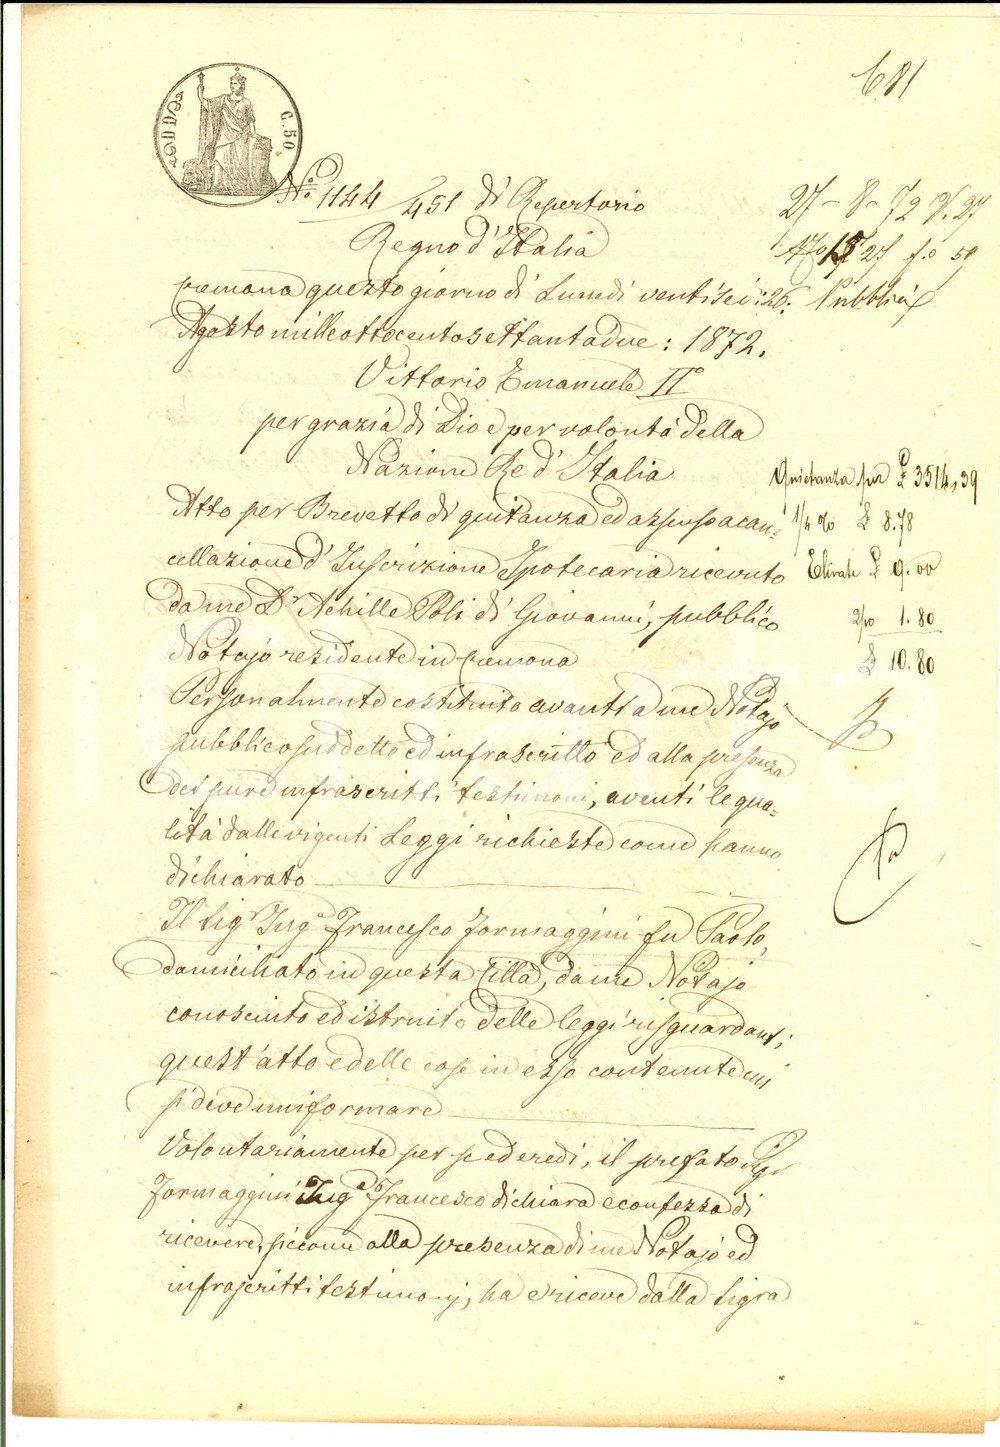 681
C. 50
N.º 1144/451 di Repertorio
Regno d'Italia
Cremona questo giorno di Lunedì ventisei :26:
Agosto mille ottocento settantadue : 1872.
Vittorio Emanuele IIº
per grazia di Dio e per volontà della
Nazione Re d'Italia
Atto per Brevetto di quitanza ed assenso a can=
cellazione d'Inscrizione Ipotecaria ricevuto
da me Dr Achille Poli di Giovanni, pubblico
Notajo residente in Cremona
Personalmente costituito avanti a me Notajo
pubblico suddetto ed infrascritto ed alla presenza
dei pure infrascritti testimoni, aventi le qua=
lità dalle vigenti Leggi richieste come hanno
dichiarato
Il Sigr Inge Francesco Formaggini fu Paolo,
domiciliato in questa Città, da me Notajo
conosciuto ed istruito delle leggi risguardanti
quest'atto e delle cose in esso contenute cui
si deve uniformare
Volontariamente per se ed eredi, il prefato Sigr
Formaggini Inge Francesco dichiara e confessa di
ricevere, siccome alla presenza di me Notajo ed
infrascritti testimonj, ha e riceve dalla Sigra
27 - 8 - 72 V. 27
27 f.o 59
Pubblici
Quietanza per £ 3514,39
1/4 % £ 8.78
£ 9.00
2/10 1.80
£ 10.80